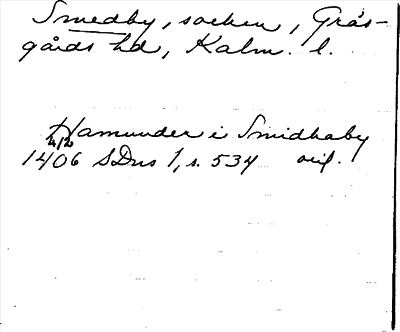 Smedby, socken, Grås-
gårds hd, Kalm. l.
Hamunder i Smidhaby
4/2
1406 SDns 1, s. 534 orig.